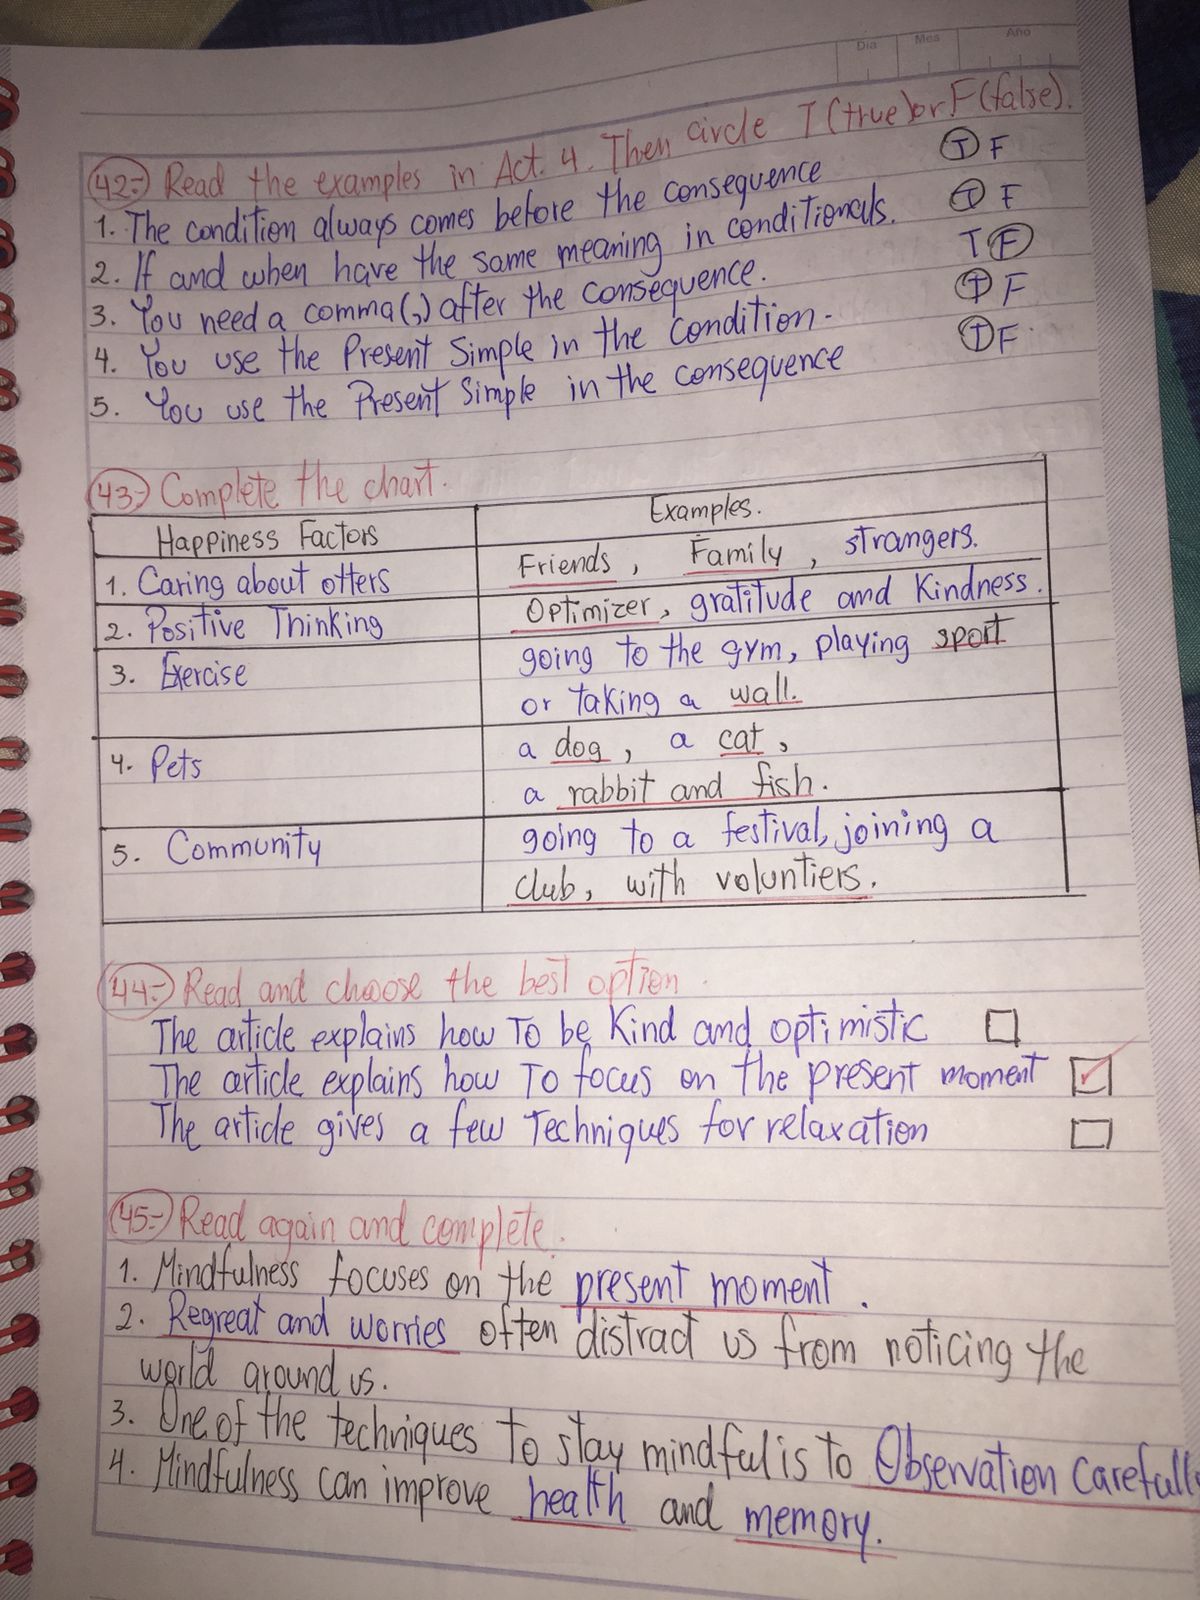 Dia Mes Año
42=) Read the examples in Act. 4. Then circle T (true) or F (false).
1. The condition always comes before the consequence T F
2. If and when have the same meaning in conditionals. T F
3. You need a comma (,) after the consequence. T F
4. You use the Present Simple in the condition. T F
5. You use the Present Simple in the consequence T F
43=) Complete the chart.
Happiness Factors Examples.
1. Caring about otters Friends, Family, strangers.
2. Positive Thinking Optimizer, gratitude and Kindness.
3. Exercise going to the gym, playing sport
or taking a wall.
4. Pets a dog, a cat,
a rabbit and fish.
5. Community going to a festival, joining a
club, with voluntiers.
44=) Read and choose the best option.
The article explains how To be Kind and optimistic
The article explains how To focus on the present moment
The article gives a few Techniques for relaxation
45=) Read again and complete.
1. Mindfulness focuses on the present moment.
2. Regreat and worries often distract us from noticing the
world around us.
3. One of the techniques to stay mindful is to Observation Carefully
4. Mindfulness can improve health and memory.